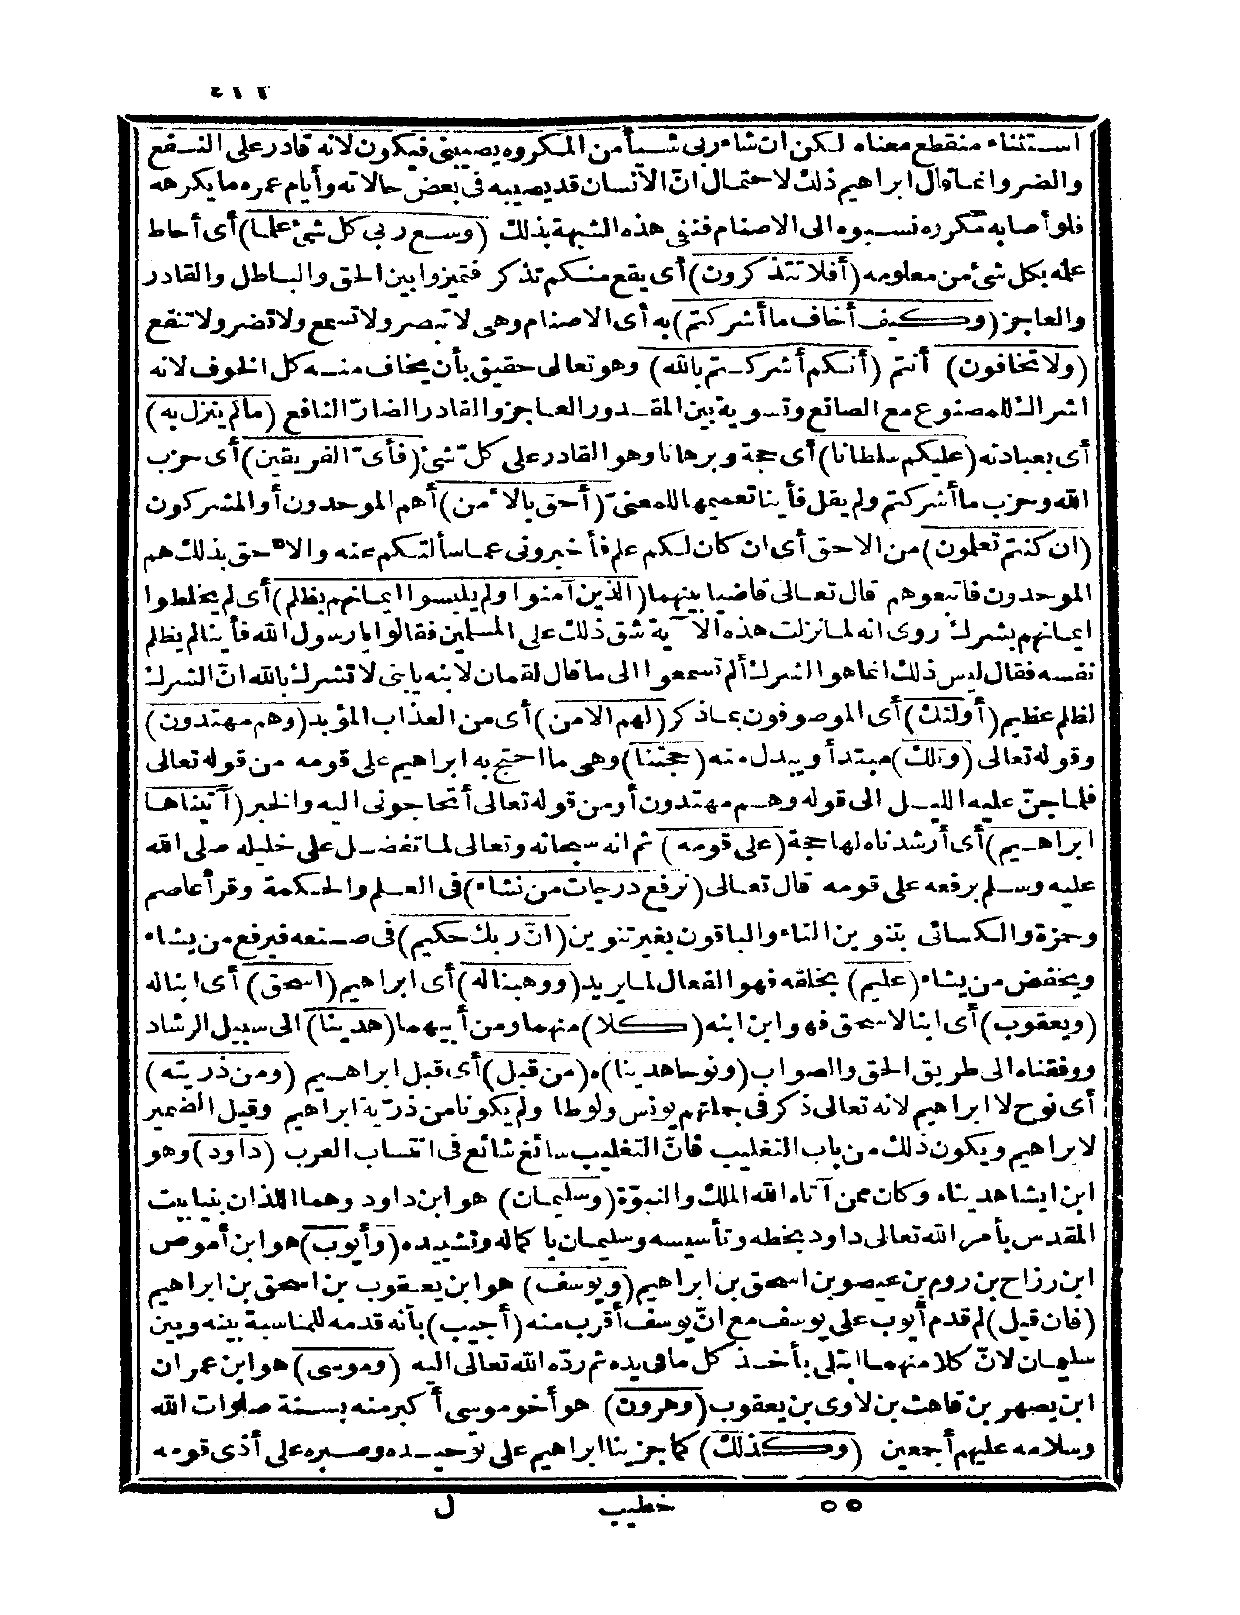 استثناء منقطع معناه لكن ان شاء ربى شيأ من المكروه يصيبنى فيكون لانه قادر على النفع
والضر وانما قال ابراهيم ذلك لاحتمال انّ الانسان قد يصيبه فى بعض حالاته وأيام عمره ما يكرهه
فلو أصابه مكروه نسبوه الى الاصنام فنفى هذه الشبهة بذلك (وسع ربى كل شئ علما) أى أحاط
علمه بكل شئ من معلومه (أفلا تتذكرون) أى يقع منكم تذكر فتميزوا بين الحق والباطل والقادر
والعاجز (وكيف أخاف ما أشركتم) به أى الاصنام وهى لا تبصر ولا تسمع ولا تضر ولا تنفع
(ولا تخافون) أنتم (أنكم أشركتم بالله) وهو تعالى حقيق بأن يخاف منه كل الخوف لانه
اشراك للمصنوع مع الصانع وتسوية بين المقدور العاجز والقادر الضارّ النافع (ما لم ينزل به)
أى بعبادته (عليكم سلطانا) أى حجة وبرهانا وهو القادر على كل شئ (فأىّ الفريقين) أى حزب
الله وحزب ما أشركتم ولم يقل فأينا تعميما للمعنى (أحق بالامن) أهم الموحدون أو المشركون
(ان كنتم تعلمون) من الاحق أى ان كان لكم علم فأخبرونى عما سألتكم عنه والاحق بذلك هم
الموحدون فاتبعوهم قال تعالى قاضيا بينهما (الذين آمنوا ولم يلبسوا ايمانهم بظلم) أى لم يخلطوا
ايمانهم بشرك روى انه لما نزلت هذه الآية شق ذلك على المسلمين فقالوا يا رسول الله فأينا لم يظلم
نفسه فقال ليس ذلك انما هو الشرك ألم تسمعوا الى ما قال لقمان لابنه يا بنى لا تشرك بالله انّ الشرك
لظلم عظيم (أولئك) أى الموصوفون بما ذكر (لهم الامن) أى من العذاب المؤبد (وهم مهتدون)
وقوله تعالى (وتلك) مبتدأ ويبدل منه (حجتنا) وهى ما احتج به ابراهيم على قومه من قوله تعالى
فلما جنّ عليه الليل الى قوله وهم مهتدون أو من قوله تعالى أتحاجونى اليه والخبر (آتيناها
ابراهيم) أى أرشدناه لها حجة (على قومه) ثم انه سبحانه وتعالى لما تفضل على خليله صلى الله
عليه وسلم برفعه على قومه قال تعالى (نرفع درجات من نشاء) فى العلم والحكمة وقرأ عاصم
وحمزة والكسائى بتنوين التاء والباقون بغير تنوين (انّ ربك حكيم) فى صنعه فيرفع من يشاء
ويخفض من يشاء (عليم) بخلقه فهو الفعال لما يريد (ووهبنا له) أى ابراهيم (اسحق) أى ابنا له
(ويعقوب) أى ابنا لاسحق فهو ابن ابنه (كلا) منهما ومن أبيهما (هدينا) الى سبيل الرشاد
ووفقناه الى طريق الحق والصواب (ونوحا هدينا)ه (من قبل) أى قبل ابراهيم (ومن ذريته)
أى نوح لا ابراهيم لانه تعالى ذكر فى جملتهم يونس ولوطا ولم يكونا من ذرّية ابراهيم وقيل الضمير
لابراهيم ويكون ذلك من باب التغليب فانّ التغليب سائغ شائع فى انتساب العرب (داود) وهو
ابن ايشا هديناه وكان ممن آتاه الله الملك والنبوّة (وسليمان) هو ابن داود وهما اللذان بنيا بيت
المقدس بأمر الله تعالى داود بخطه وتأسيسه وسليمان باكماله وتشييده (وأيوب) هو ابن أموص
ابن رزاح بن روم بن عيصو بن اسحق بن ابراهيم (ويوسف) هو ابن يعقوب بن اسحق بن ابراهيم
(فان قيل) لم قدم أيوب على يوسف مع انّ يوسف أقرب منه (أجيب) بأنه قدمه للمناسبة بينه وبين
سليمان لانّ كلا منهما ابتلى بأخذ كل ما فى يده ثم ردّه الله تعالى اليه (وموسى) هو ابن عمران
ابن يصهر بن قاهث بن لاوى بن يعقوب (وهرون) هو أخو موسى أكبر منه بسنة صلوات الله
وسلامه عليهم أجمعين (وكذلك) كما جزينا ابراهيم على توحيده وصبره على أذى قومه
٥٥ خطيب ل